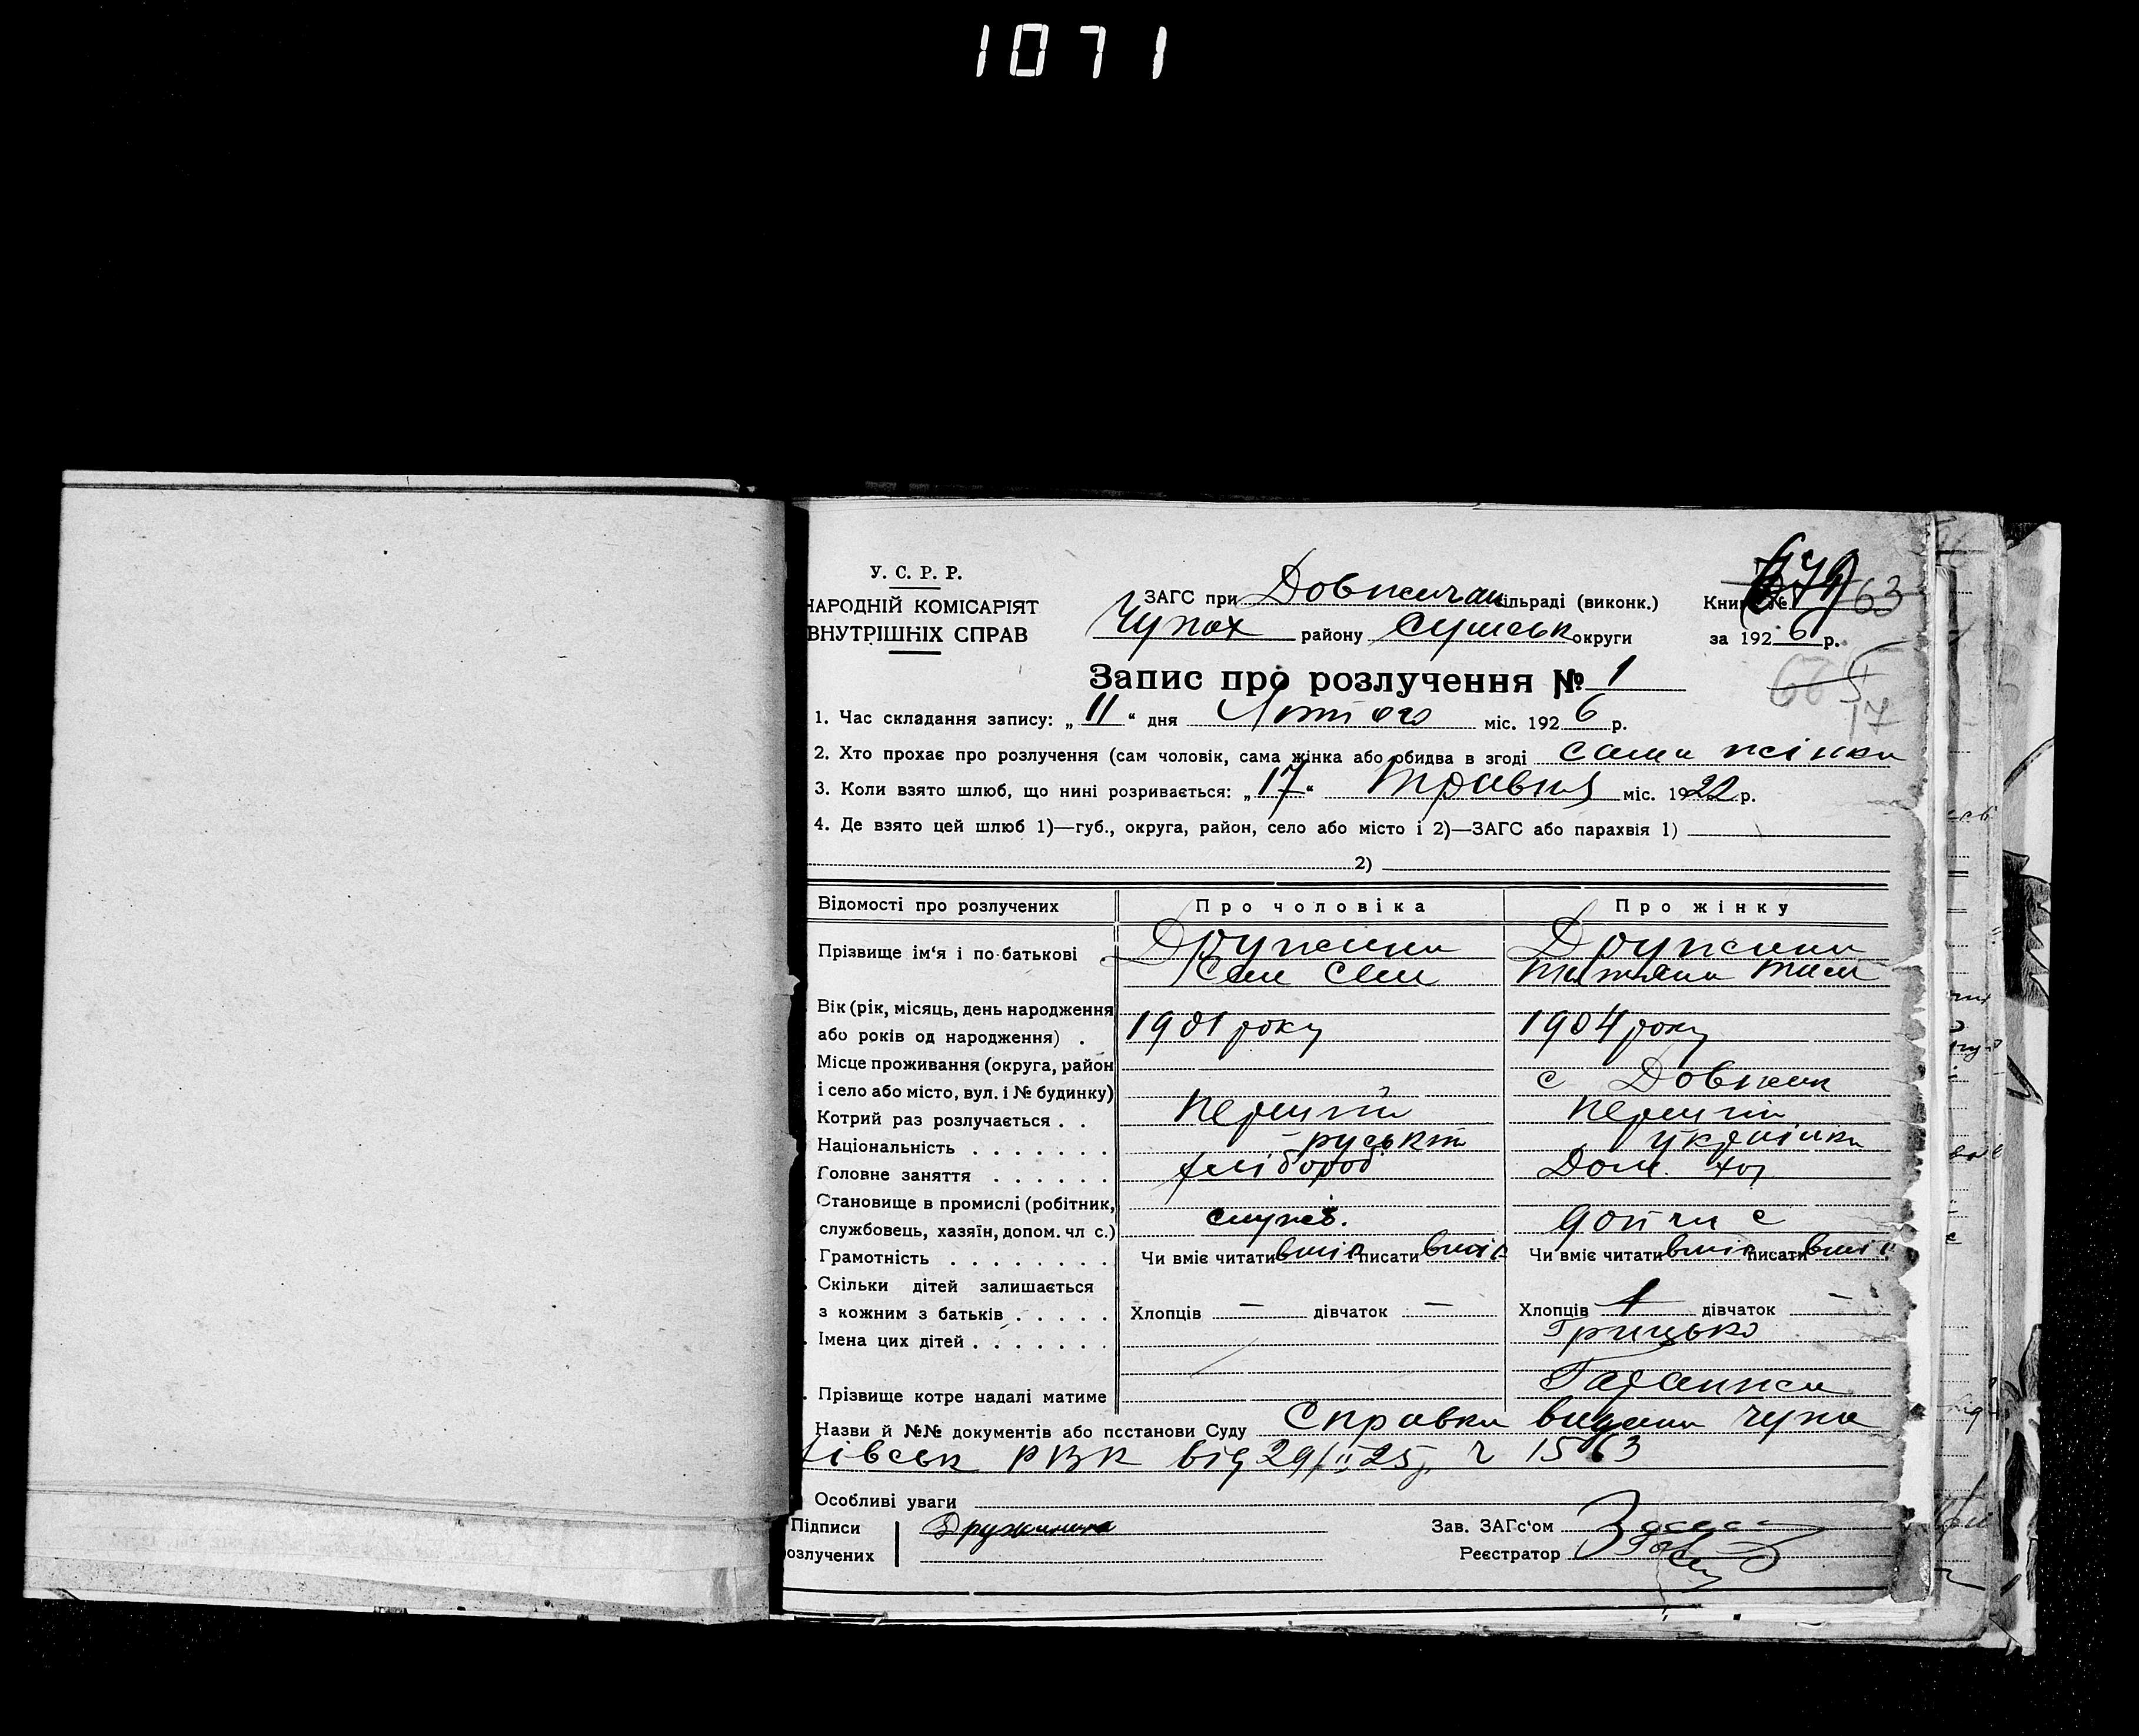 1071
У. С. Р. Р.
НАРОДНІЙ КОМІСАРІЯТ
ВНУТРІШНІХ СПРАВ
ЗАГС при Довжичан сільраді (виконк.)
Чупах району Сумськ округи
Книга № 63
за 1926 р.
Запис про розлучення № 1
17
1. Час складання запису: „11“ дня Лютого міс. 1926 р.
2. Хто прохає про розлучення (сам чоловік, сама жінка або обидва в згоді сама жінка
3. Коли взято шлюб, що нині розривається: „17“ травня міс. 1922 р.
4. Де взято цей шлюб 1)—губ., округа, район, село або місто і 2)—ЗАГС або парахвія 1)
2)
Відомості про розлучених Про чоловіка Про жінку
Прізвище ім‘я і по-батькові Дружина Дружина
Сем Сем Татьяна Тим
Вік (рік, місяць, день народження
або років од народження) . 1901 року 1904 року
Місце проживання (округа, район
і село або місто, вул. і № будинку) с Довжик
Котрий раз розлучається . . перший перший
Національність . . . . . . . руський українка
Головне заняття . . . . . . хлібороб Дом. хоз
Становище в промислі (робітник,
службовець, хазяїн, допом. чл с.) служб. доп чл с
Грамотність . . . . . . . . Чи вміє читати вміє писати вміє Чи вміє читати вміє писати вміє
Скільки дітей залишається
з кожним з батьків . . . . . Хлопців — дівчаток — Хлопців 1 дівчаток —
Імена цих дітей . . . . . . . Грицько
Прізвище котре надалі матиме Гаранжа
Назви й №№ документів або постанови Суду Справка видана Чупа
хівськ РВК від 29/II 25 р. ч 1563
Особливі уваги
Підписи
розлучених
Дружинина
Зав. ЗАГс‘ом
Реєстратор